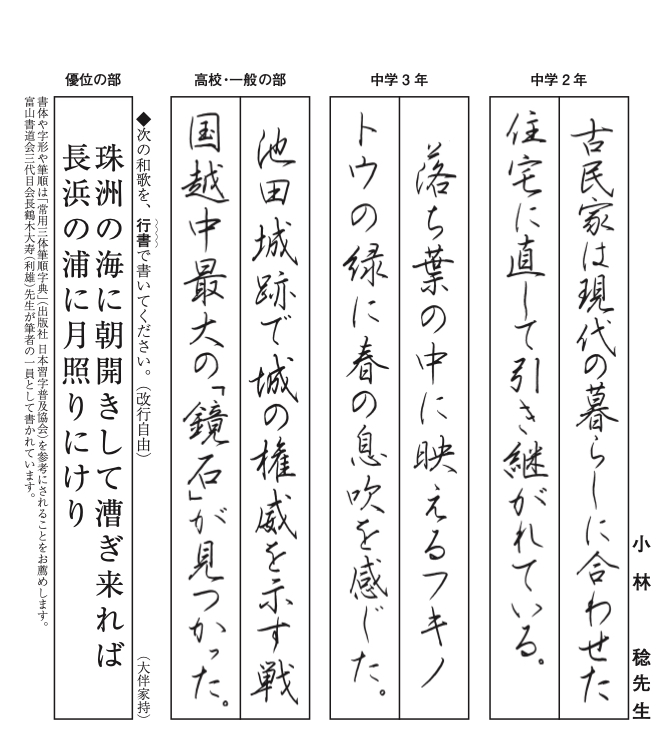 小林 稔先生
中学２年
古民家は現代の暮らしに合わせた
住宅に直して引き継がれている。
中学３年
落ち葉の中に映えるフキノ
トウの緑に春の息吹を感じた。
高校・一般の部
池田城跡で城の権威を示す戦
国越中最大の「鏡石」が見つかった。
◆次の和歌を、行書で書いてください。（改行自由）
（大伴家持）
優位の部
珠洲の海に朝開きして漕ぎ来れば
長浜の浦に月照りにけり
書体や字形や筆順は「常用三体筆順字典」（出版社 日本習字普及協会）を参考にされることをお薦めします。
富山書道会三代目会長鶴木大寿（利雄）先生が筆者の一員として書かれています。